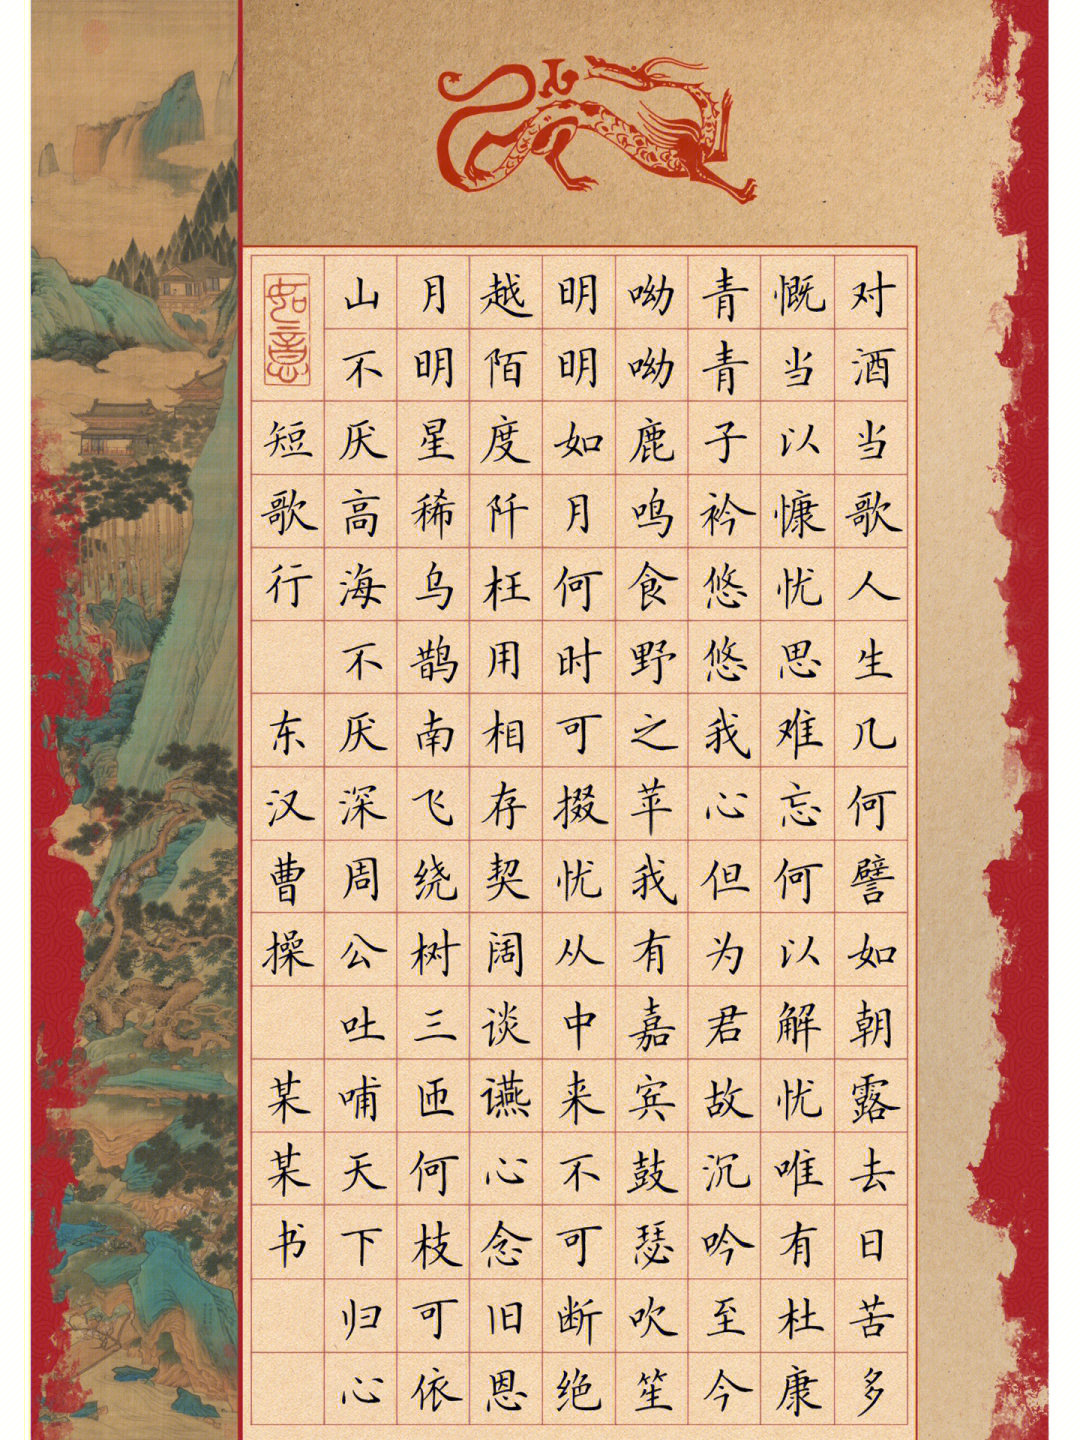 对酒当歌人生几何譬如朝露去日苦多
慨当以慷忧思难忘何以解忧唯有杜康
青青子衿悠悠我心但为君故沉吟至今
呦呦鹿鸣食野之苹我有嘉宾鼓瑟吹笙
明明如月何时可掇忧从中来不可断绝
越陌度阡枉用相存契阔谈讌心念旧恩
月明星稀乌鹊南飞绕树三匝何枝可依
山不厌高海不厌深周公吐哺天下归心
如意
短歌行 东汉曹操 某某书